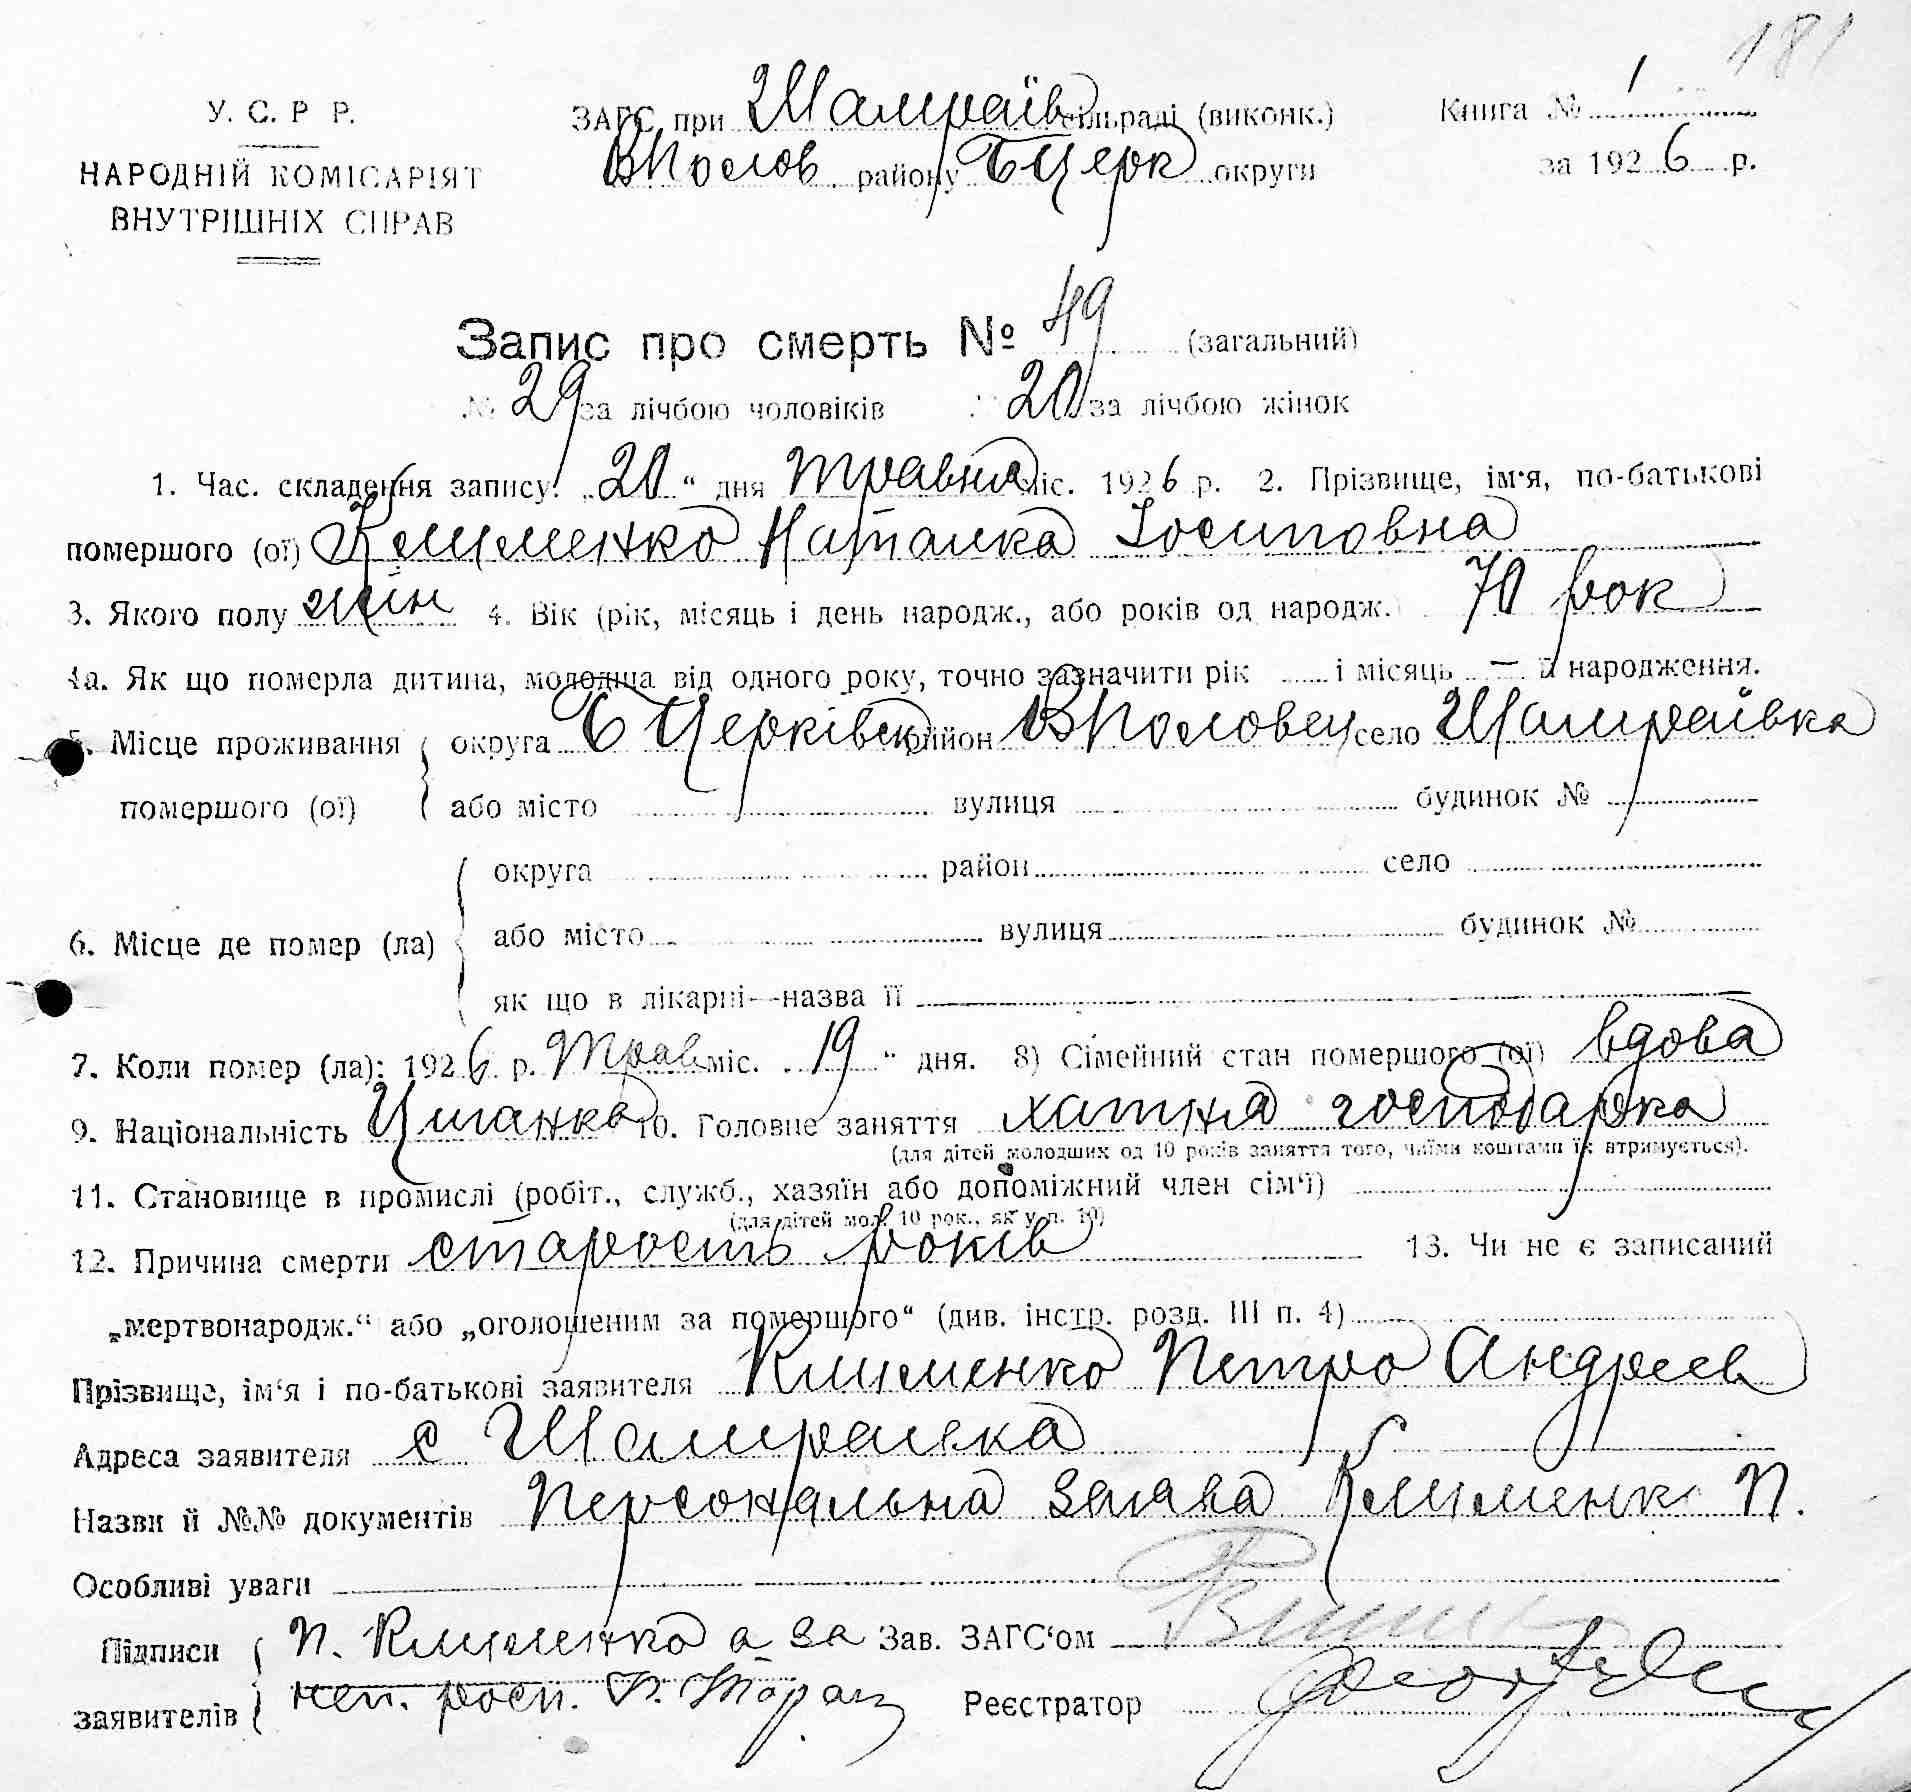 181
У. С. Р Р.
ЗАГС при Шамраїв сільраді (виконк.)
Книга № 1
НАРОДНІЙ КОМІСАРІЯТ
ВПолов району БЦерк округи
за 1926 р.
ВНУТРІШНІХ СПРАВ
Запис про смерть № 49 (загальний)
№ 29 за лічбою чоловіків № 20 за лічбою жінок
1. Час. складення запису: „20“ дня травня міс. 1926 р. 2. Прізвище, ім‘я, по-батькові
помершого (ої) Клименко Наталка Іосиповна
3. Якого полу жін 4. Вік (рік, місяць і день народж., або років од народж.) 70 рок
4а. Як що померла дитина, молодша від одного року, точно зазначити рік ...... і місяць — її народження.
5. Місце проживання округа БЦерківск район ВПоловец село Шамраївка
помершого (ої) або місто вулиця будинок №
округа район село
6. Місце де помер (ла) або місто вулиця будинок №
як що в лікарні—назва її
7. Коли помер (ла): 1926 р. Трав міс. 19 “ дня. 8) Сімейний стан помершого (ої) вдова
9. Національність Циганка 10. Головне заняття хатня господарка
(для дітей молодших од 10 років заняття того, чиїми коштами їх втримується).
11. Становище в промислі (робіт., служб., хазяїн або допоміжний член сім‘ї)
(для дітей мол. 10 рок., як у п. 10)
12. Причина смерти старость років 13. Чи не є записаний
„мертвонародж.“ або „оголошеним за помершого“ (див. інстр. розд. III п. 4)
Прізвище, ім‘я і по-батькові заявителя Клименко Петро Андреев
Адреса заявителя с Шамраевка
Назви й №№ документів Персональна заява Клименк П.
Особливі уваги
Підписи П. Клименко а за Зав. ЗАГС‘ом
заявителів неп. росп. Реєстратор